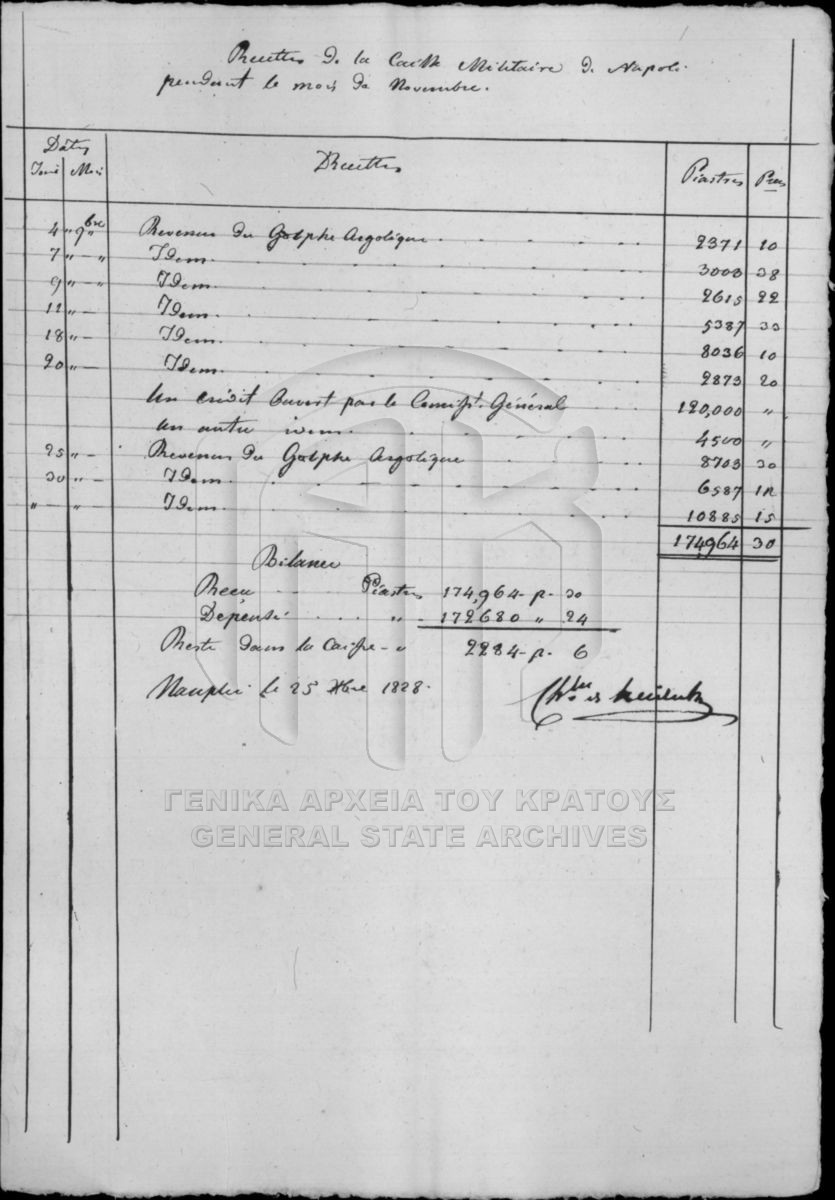 Recettes de la Caisse Militaire de Napoli
pendant le mois de Novembre.
Dates
Jour Mois Recettes Piastres Pras
4 " 9bre Revenus du Golphe Argolique 2371 10
7 " — " Idem 3003 38
9 " — " Idem 2615 22
11 " — Idem 5387 30
18 " — Idem 8036 10
20 " — Idem 2873 20
Un crédit ouvert par le Comisst. Général 120,000 "
un autre idem 4500 "
25 " — Revenus du Golphe Argolique 8703 30
30 " — Idem 6587 12
" — " — Idem 10885 15
174,964 30
Bilance
Reçu Piastres 174,964 - p. 30
Dépensé " 172680 " 24
Reste dans la Caisse - " 2284 - p. 6
Nauplie le 25 Xbre 1828.
ΓΕΝΙΚΑ ΑΡΧΕΙΑ ΤΟΥ ΚΡΑΤΟΥΣ
GENERAL STATE ARCHIVES